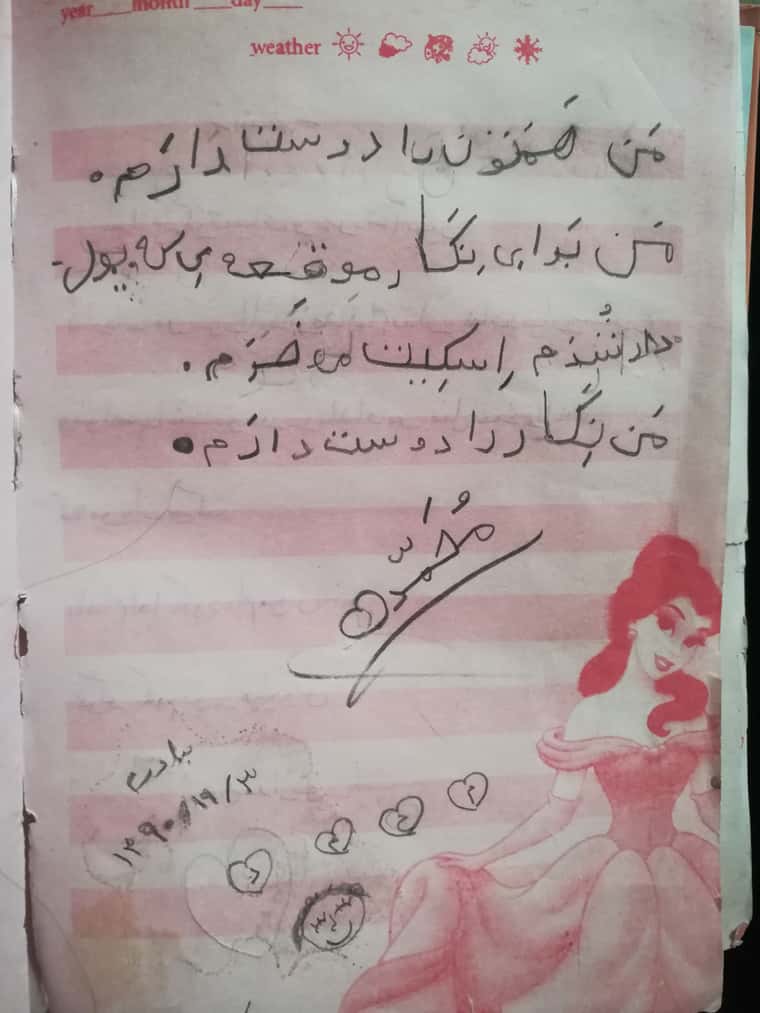 year____month____day____
weather
مَن هَمَتون را دوست دارَم.
مَن بَرای نِگار موقِعه یی که پول
دار شُدَم اِسکِیت می خَرَم.
مَن نِگار را دوست دارَم.
مُحَمَّد
برادرم
۱۳۹۰/۱۹/۳